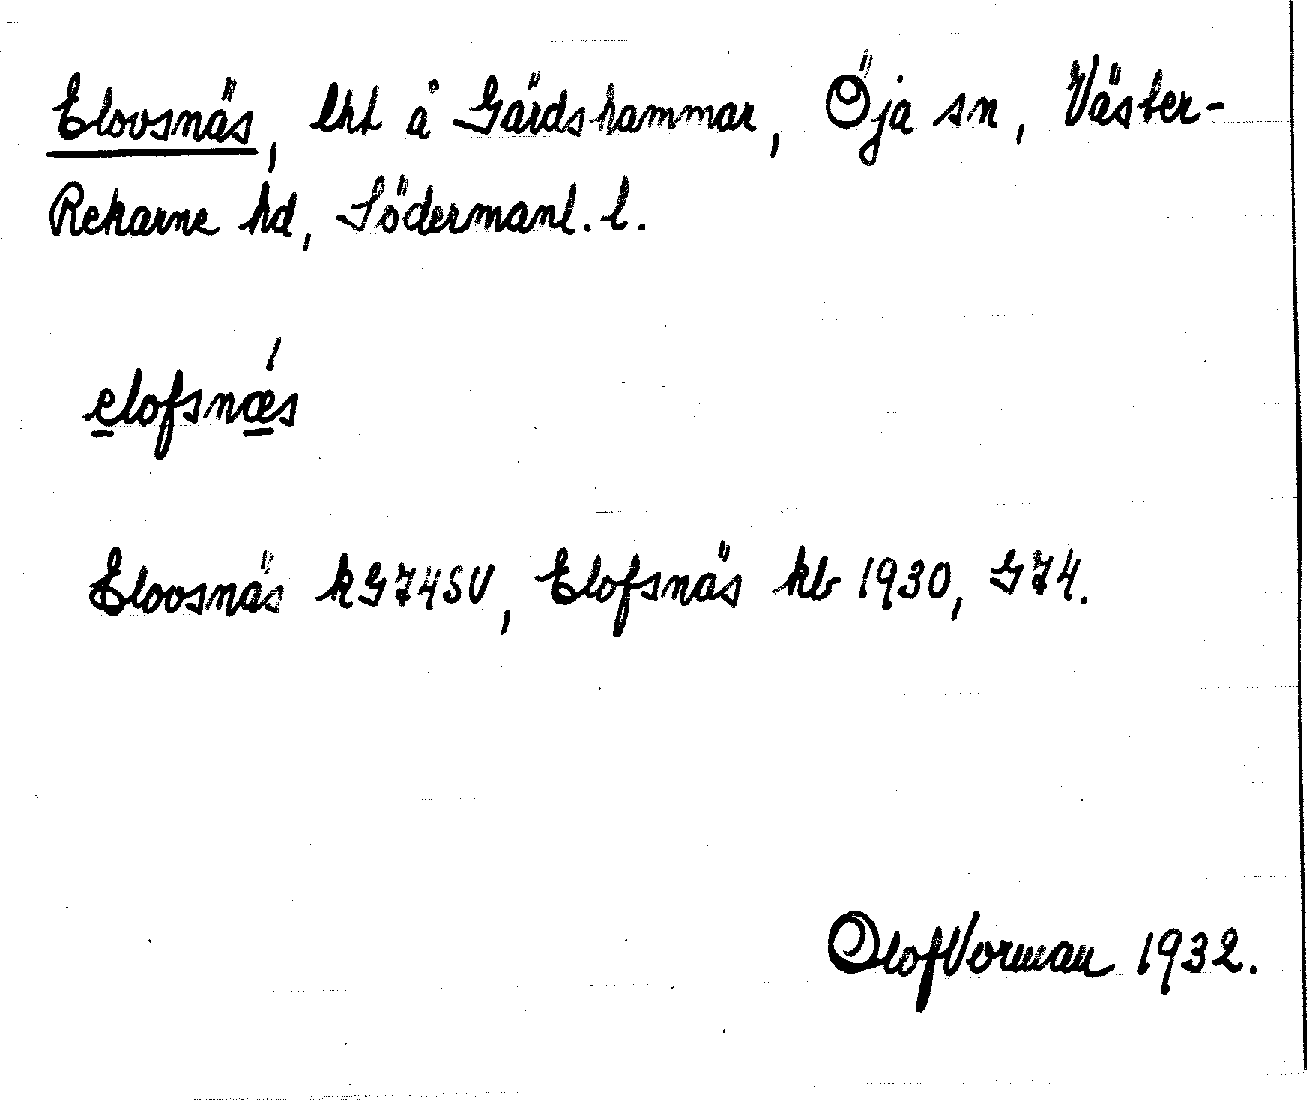 Elovsnäs, lht å Gärdshammar, Öja sn, Väster-
Rekarne hd, Södermanl. l.
elofsnæs
Elovsnäs kG74SV, Elofsnäs kb 1930, G74.
Olof Vorman 1932.